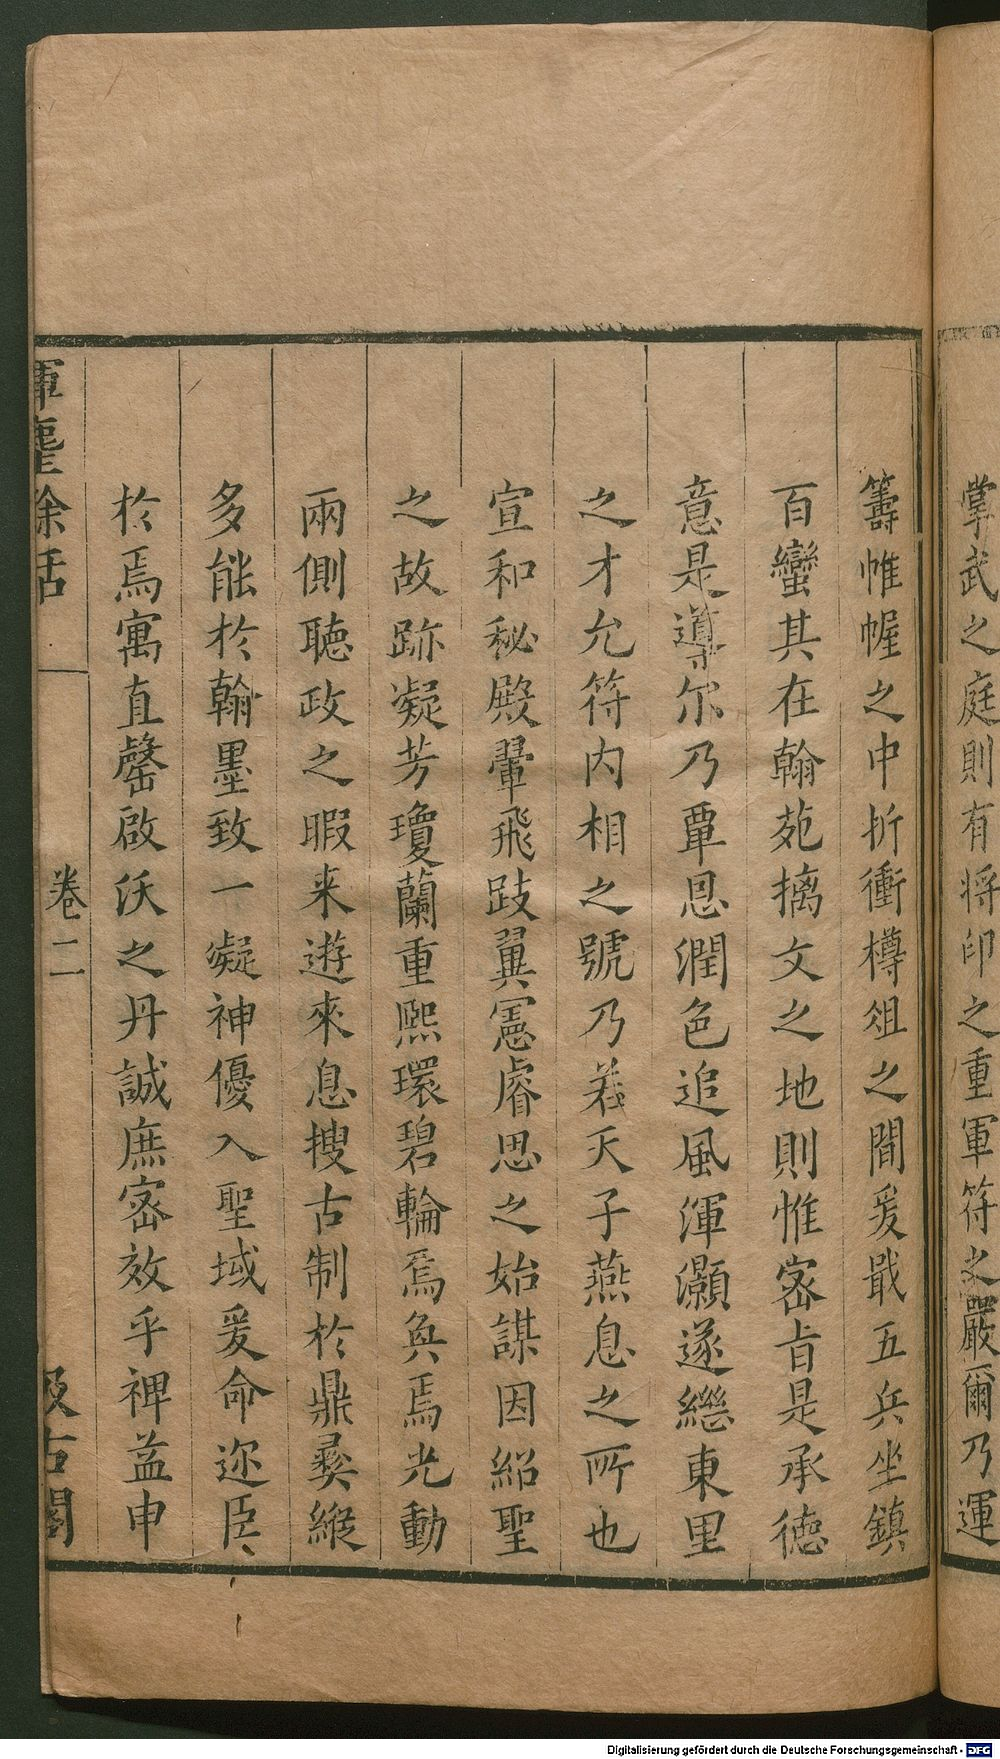 掌武之庭則有将印之重軍符之嚴爾乃運
籌帷幄之中折衝樽俎之間爰戢五兵坐鎮
百蠻其在翰苑摛文之地則惟宻旨是承徳
意是導尔乃覃恩潤色追風渾灝遂繼東里
之才允符内相之號乃若天子燕息之所也
宣和秘殿翬飛跂翼憲睿思之始謀因紹聖
之故跡凝芳瓊蘭重熈環碧輪焉奐焉光動
兩側聴政之暇来遊來息搜古制於鼎彛縱
多能於翰墨致一凝神優入聖域爰命迩臣
於焉寓直罄啟沃之丹誠庶宻效乎禆益申
揮麈餘話
卷二
汲古閣
Digitalisierung gefördert durch die Deutsche Forschungsgemeinschaft - DFG